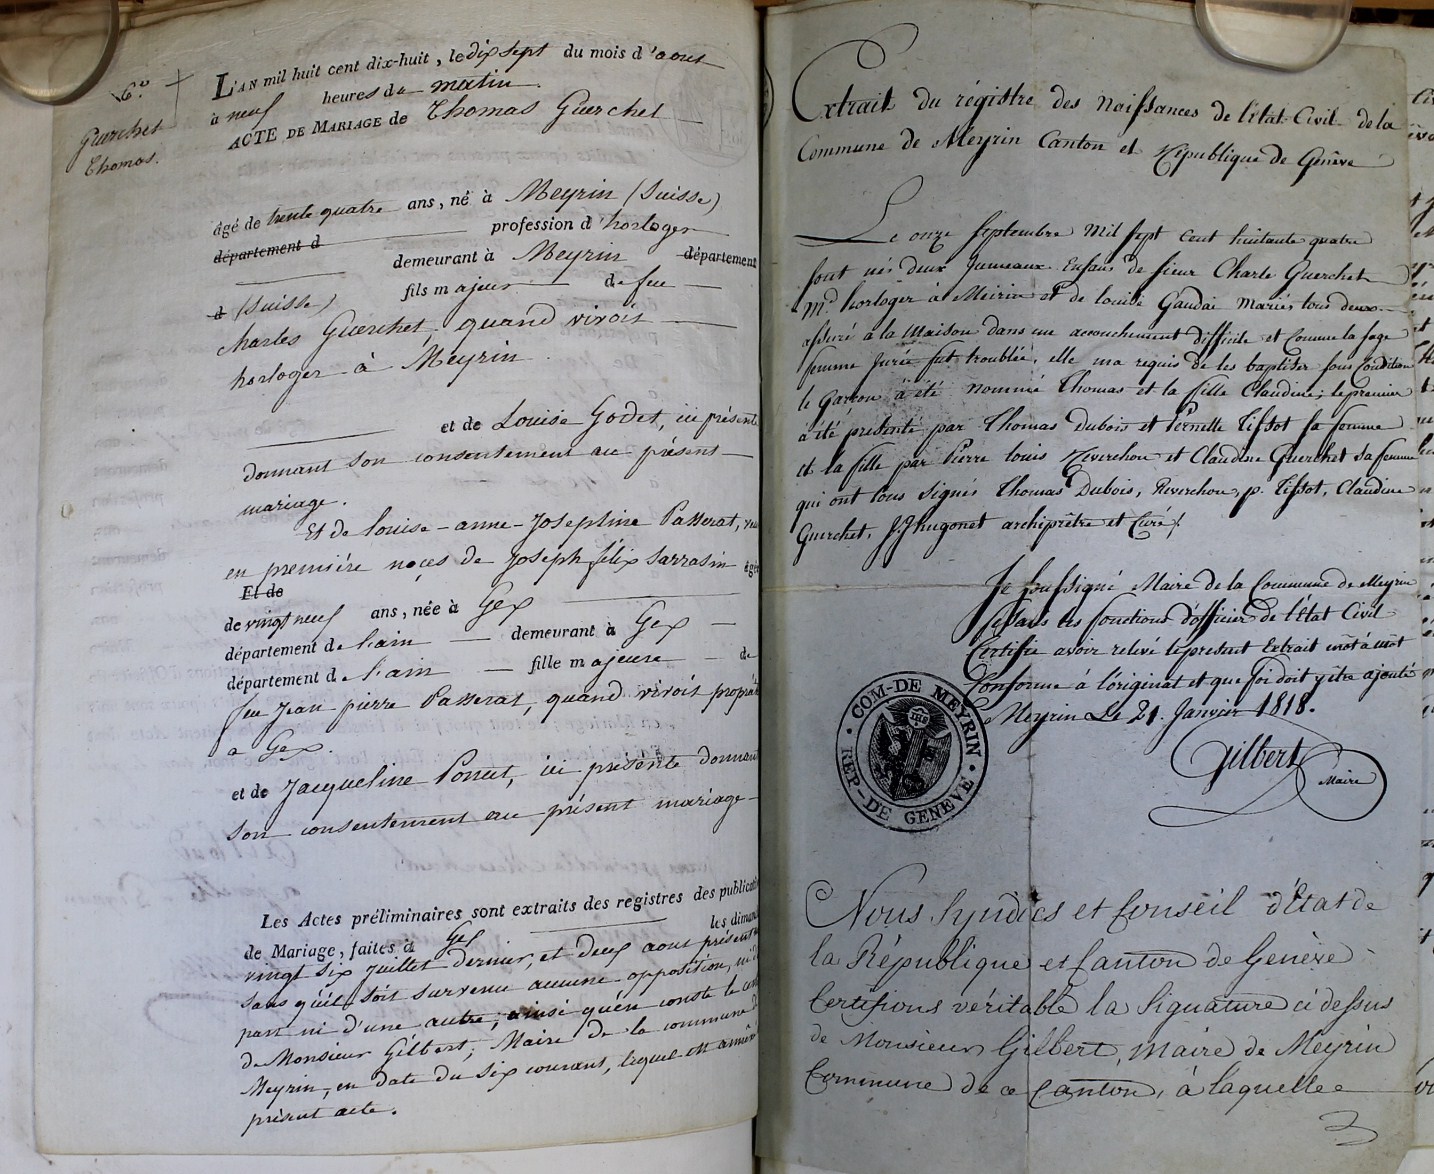 6.e
Guerchet
Thomas.
L'AN mil huit cent dix-huit, le dix sept du mois d'aout
à neuf heures du matin.
ACTE DE MARIAGE de Thomas Guerchet
âgé de trente quatre ans, né à Meyrin (Suisse)
département d profession d'horloger
demeurant à Meyrin département
d (Suisse) fils majeur de feu
charles Guerchet, quand vivois
horloger à Meyrin.
et de Louise Godet, ici présente
donnant son consentement au présent
mariage.
Et de louise-anne-Josephine Passerat,
en premiére noçes de Joséph félix Sarrasin âgée
Et de
de vingt neuf ans, née à Gex
département de l'ain demeurant à Gex
département de l'ain fille majeure de
feu Jean pierre Passerat, quand vivois
a Gex.
et de Jacqueline Poncet, ici présente donnant
son consentement au présent mariage
Les Actes préliminaires sont extraits des registres des publications
de Mariage, faites à Gex les dimanches
vingt six Juillet dernier, et deux aout présent
sans qu'il soit survenu aucune opposition, ni
part ni d'une autre; ainsi qu'en conste le
de Monsieur Gilbert, Maire de la commune de
Meyrin, en date du six courant, lequel est
présent acte.
Extrait du régistre des naissances de l'état Civil de la
Commune de Meyrin Canton et République de Genêve
Le onze Septembre mil sept cent huitante quatre
sont nés deux Jumeaux Enfans de sieur Charle Guerchet
Md. horloger à Meirin et de louise Gaudai mariés tous deux
assuré à la maison dans un accouchement difficile et comme la sage
femme Jurée fut troublée, elle ma requis de les baptiser sous Condition
le garçon à été nommé Thomas et la fille Claudine; le premier
à été présenté par Thomas Dubois et Pernelle Tissot sa femme
et la fille par Pierre louis Reverchon et Claudine Guerchet sa femme
qui ont tous signés Thomas Dubois, Reverchon, p. Tissot, Claudine
Guerchet, J. J. hugonet archiprêtre et Curé.
Je soussigné Maire de la Commune de Meyrin
faisans les fonctions d'officier de l'état Civil
Certifie avoir relevé le présent Extrait mot à mot
Conforme à l'original et que foi doit y être ajouté
Meyrin Le 21. Janvier 1818.
Gilbert
Maire
COM-DE MEYRIN
REP-DE GENEVE
IHS
Nous Syndics et Conseil d'état de
la République et Canton de Genève
Certifions véritable la Signature ci dessus
de Monsieur Gilbert, maire de Meyrin
Commune de ce Canton, à laquelle